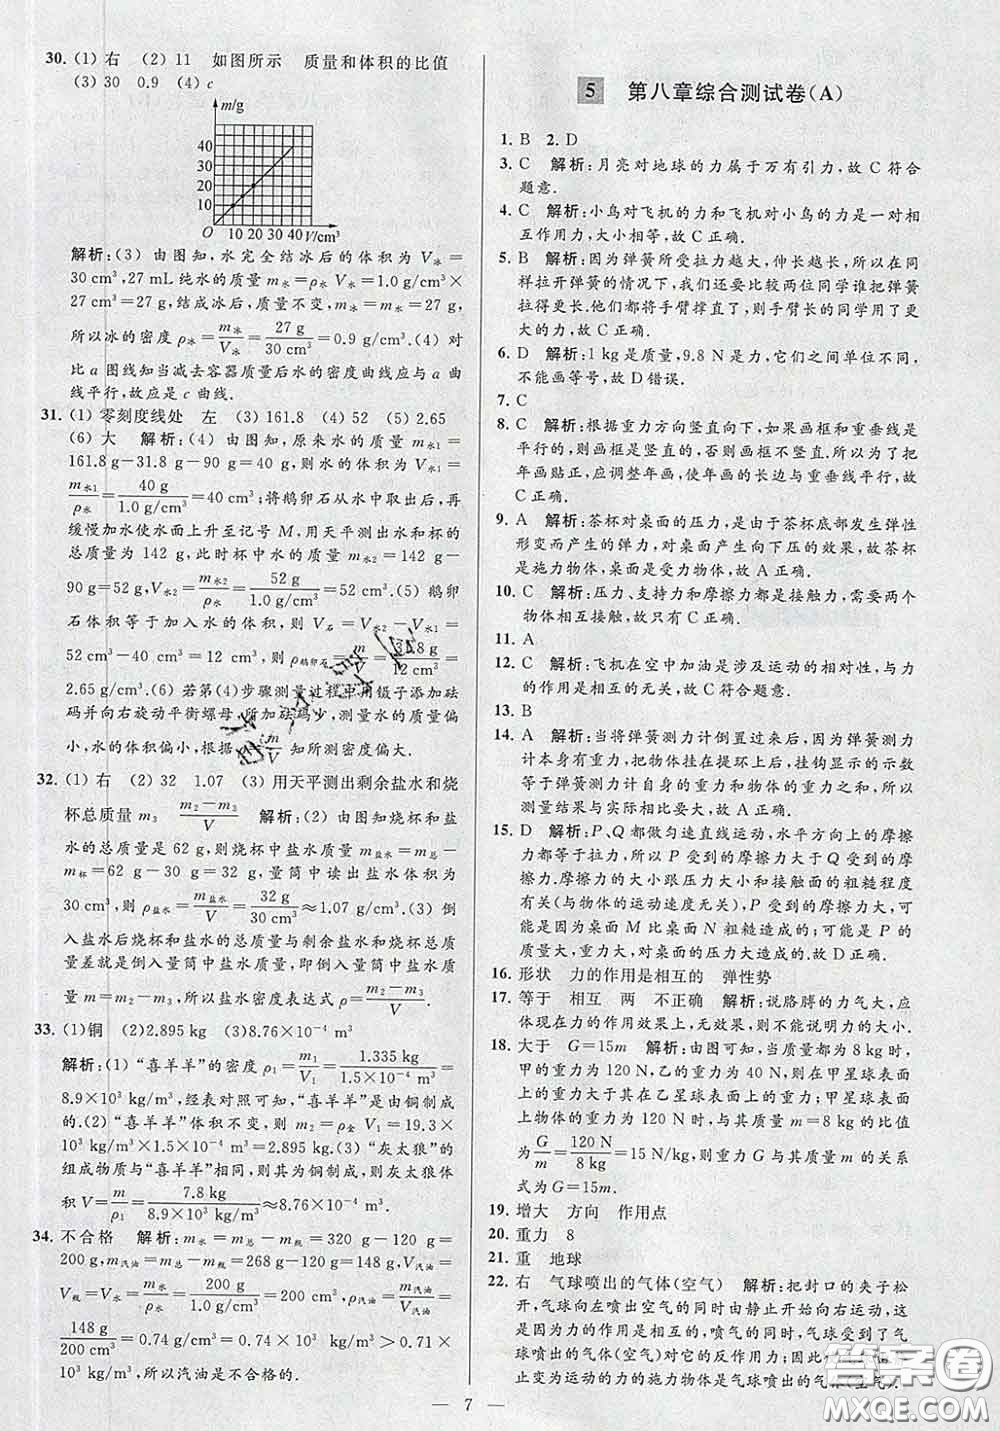 30. (1) 右 (2) 11 如图所示 质量和体积的比值
(3) 30 0.9 (4) c
m/g
40
30
20
10
O 10 20 30 40 V/cm³
解析:(3) 由图知,水完全结冰后的体积为 V冰=
30 cm³,27 mL 纯水的质量 m水=ρ水 V水=1.0 g/cm³×
27 cm³=27 g,结成冰后,质量不变,m冰=m水=27 g,
所以冰的密度 ρ冰=m冰/V冰=27 g/30 cm³=0.9 g/cm³.(4) 对
比 a 图线知当减去容器质量后水的密度曲线应与 a 曲
线平行,故应是 c 曲线.
31. (1) 零刻度线处 左 (3) 161.8 (4) 52 (5) 2.65
(6) 大 解析:(4) 由图知,原来水的质量 m水1=
161.8 g-31.8 g-90 g=40 g,则水的体积为 V水1=
m水1/ρ水=40 g/1.0 g/cm³=40 cm³;将鹅卵石从水中取出后,再
缓慢加水使水面上升至记号 M,用天平测出水和杯的
总质量为 142 g,此时杯中水的质量 m水2=142 g-
90 g=52 g,V水2=m水2/ρ水=52 g/1.0 g/cm³=52 cm³.(5) 鹅卵
石体积等于加入水的体积,则 V石=V水2-V水1=
52 cm³-40 cm³=12 cm³,则 ρ鹅卵石=m/V=31.8 g/12 cm³=
2.65 g/cm³.(6) 若第(4)步骤测量过程中用镊子添加砝
码并向右旋动平衡螺母,所加砝码少,测量水的质量偏
小,水的体积偏小,根据 ρ=m/V 知所测密度偏大.
32. (1) 右 (2) 32 1.07 (3) 用天平测出剩余盐水和烧
杯总质量 m₃ (m₂-m₃)/V 解析:(2) 由图知烧杯和盐
水的总质量是 62 g,则烧杯中盐水的质量 m盐水=m总-
m杯=62 g-30 g=32 g,量筒中读出盐水体积为
30 cm³,ρ盐水=m盐水/V=32 g/30 cm³≈1.07 g/cm³.(3) 倒
入盐水后烧杯和盐水的总质量与剩余盐水和烧杯总质
量差就是倒入量筒中盐水质量,即倒入量筒中盐水质
量 m=m₂-m₃,所以盐水密度表达式 ρ=(m₂-m₃)/V.
33. (1)铜 (2)2.895 kg (3)8.76×10⁻⁴ m³
解析:(1) “喜羊羊”的密度 ρ₁=m₁/V₁=1.335 kg/1.5×10⁻⁴ m³=
8.9×10³ kg/m³,经表对照可知,“喜羊羊”由铜制成
的.(2)“喜羊羊”体积不变,则 m₂=ρ金 V₁=19.3×
10³ kg/m³×1.5×10⁻⁴ m³=2.895 kg.(3)“灰太狼”的
组成物质与“喜羊羊”相同,则其为铜制成,灰太狼体
积 V=m/ρ₁=7.8 kg/8.9×10³ kg/m³≈8.76×10⁻⁴ m³.
34. 不合格 解析:m水=m总-m瓶=320 g-120 g=
200 g,m汽油=m总-m瓶=268 g-120 g=148 g,V汽油=
V瓶=V水=m水/ρ水=200 g/1.0 g/cm³=200 cm³,ρ汽油=m汽油/V汽油=
148 g/200 cm³=0.74 g/cm³=0.74×10³ kg/m³>0.71×
10³ kg/m³.所以汽油是不合格的.
5 第八章综合测试卷(A)
1. B 2. D
3. C 解析:月亮对地球的力属于万有引力,故 C 符合
题意.
4. C 解析:小鸟对飞机的力和飞机对小鸟的力是一对相
互作用力,大小相等,故 C 正确.
5. B 解析:因为弹簧所受拉力越大,伸长越长,所以在同
样拉开弹簧的情况下,我们还要比较两位同学谁把弹簧
拉得更长.他们都将手臂撑直了,则手臂长的同学用了更
大的力,故 C 正确.
6. D 解析:1 kg 是质量,9.8 N 是力,它们之间单位不同,
不能画等号,故 D 错误.
7. C
8. C 解析:根据重力方向竖直向下,如果画框和重垂线是
平行的,则画框是竖直的,否则画框不竖直.所以为了把
年画贴正,应调整年画,使年画的长边与重垂线平行,故
C 正确.
9. A 解析:茶杯对桌面的压力,是由于茶杯底部发生弹性
形变而产生的弹力,对桌面产生向下压的效果,故茶杯
是施力物体,桌面是受力物体,故 A 正确.
10. C 解析:压力、支持力和摩擦力都是接触力,需要两个
物体相互接触,故只有 C 正确.
11. A
12. C 解析:飞机在空中加油是涉及运动的相对性,与力
的作用是相互的无关,故 C 符合题意.
13. B
14. A 解析:当将弹簧测力计倒置过来后,因为弹簧测力
计本身有重力,把物体挂在提环上后,挂钩显示的示数
等于弹簧测力计自身的重力和物体的重力之和,所以
测量结果与实际相比要大,故 A 正确.
15. D 解析:P、Q 都做匀速直线运动,水平方向上的摩擦
力都等于拉力,所以 P 受到的摩擦力大于 Q 受到的摩
擦力.摩擦力的大小跟压力大小和接触面的粗糙程度
有关(与物体的运动速度无关),P 受到的摩擦力大,可
能是因为桌面 M 比桌面 N 粗糙造成的;可能是 P 的
质量大,重力大,对桌面的压力大造成的,故 D 正确.
16. 形状 力的作用是相互的 弹性势
17. 等于 相互 两 不正确 解析:说胳膊的力气大,应
体现在力的作用效果上,无形变,无法说明力的大小.
18. 大于 G=15m 解析:由图可知,当质量都为 8 kg 时,
甲的重力为 120 N,乙的重力为 40 N,则在甲星球表面
的物体重力大于在乙星球表面的物体重力;甲星球表
面上物体的重力为 120 N 时,与其质量 m=8 kg 的比值
为 G/m=120 N/8 kg=15 N/kg,则重力 G 与其质量 m 的关系
式为 G=15m.
19. 增大 方向 作用点
20. 重力 8
21. 重 地球
22. 右 气球喷出的气体(空气) 解析:把封口的夹子松
开,气球向左喷出空气的同时由静止开始向右运动,这
是因为力的作用是相互的,喷气的同时,气球受到了气
球喷出的气体(空气)对它的反作用力;因此使气球由静
止变为运动的力的施力物体是气球喷出的气体(空气).
7
答案圈
MXQE.COM